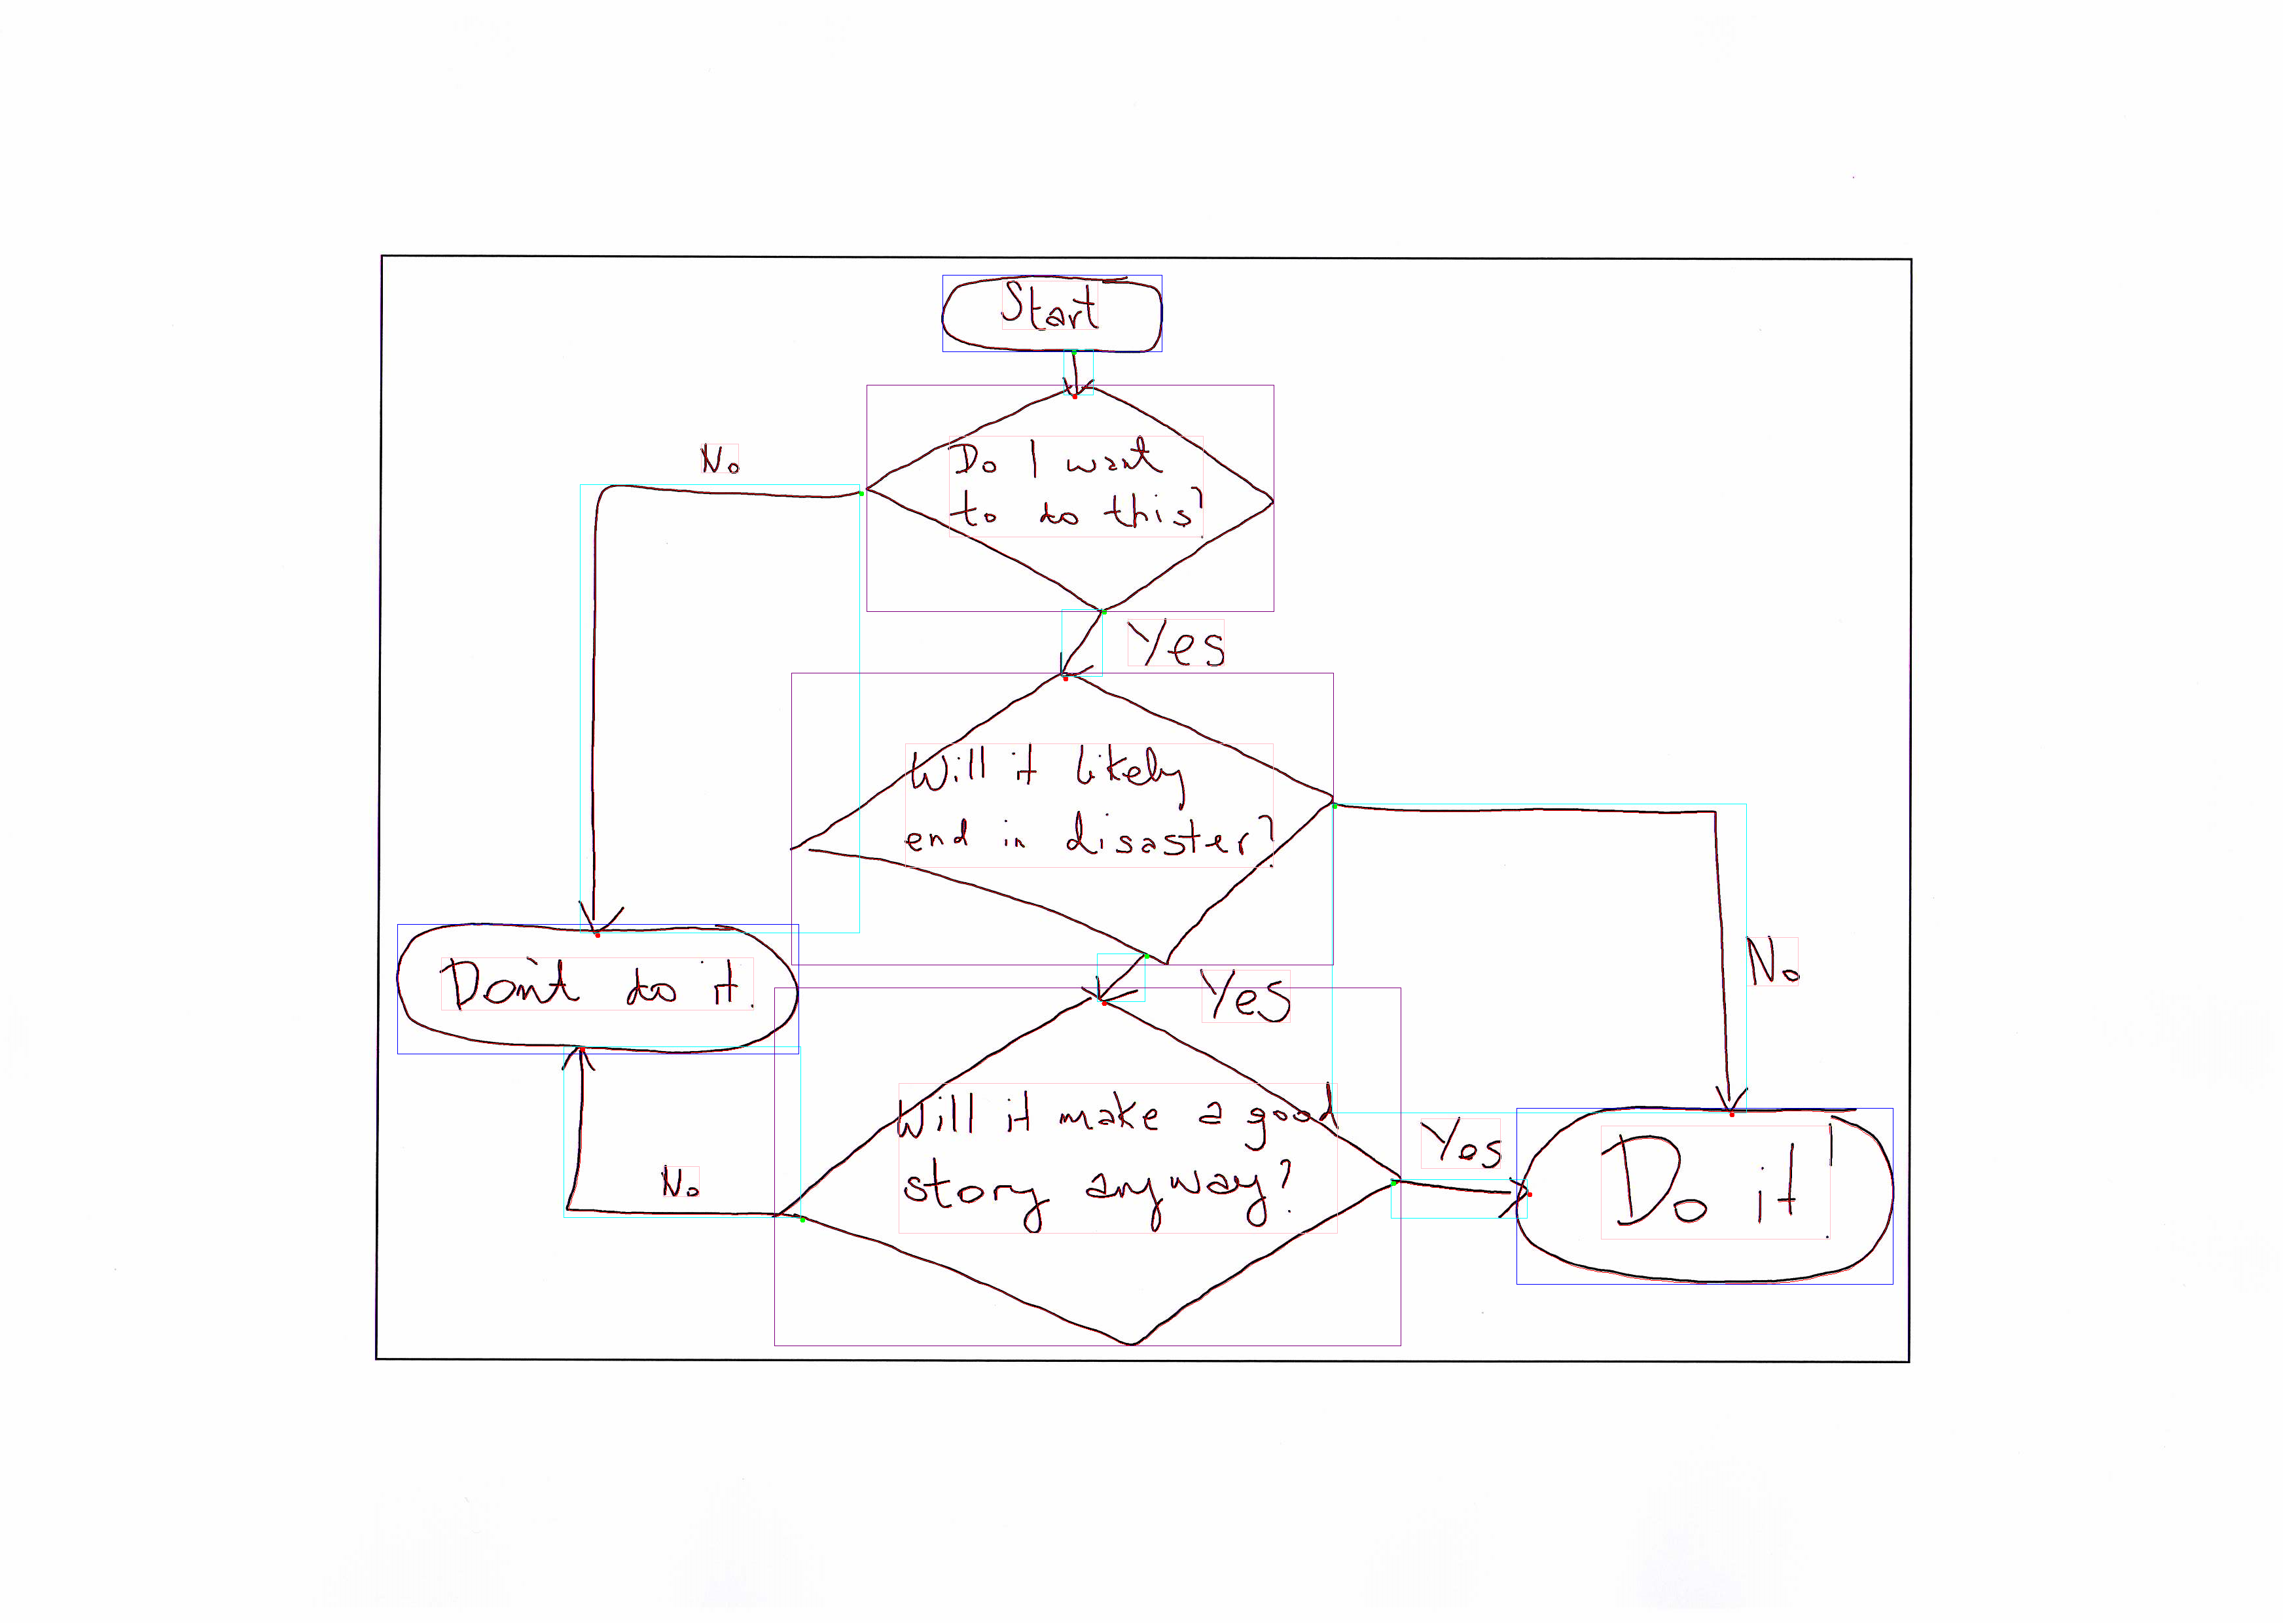 Start
No
Do I want
to do this?
Yes
Will it likely
end in disaster?
No
Don't do it.
Yes
Will it make a good
story anyway?
No
Yes
Do it!